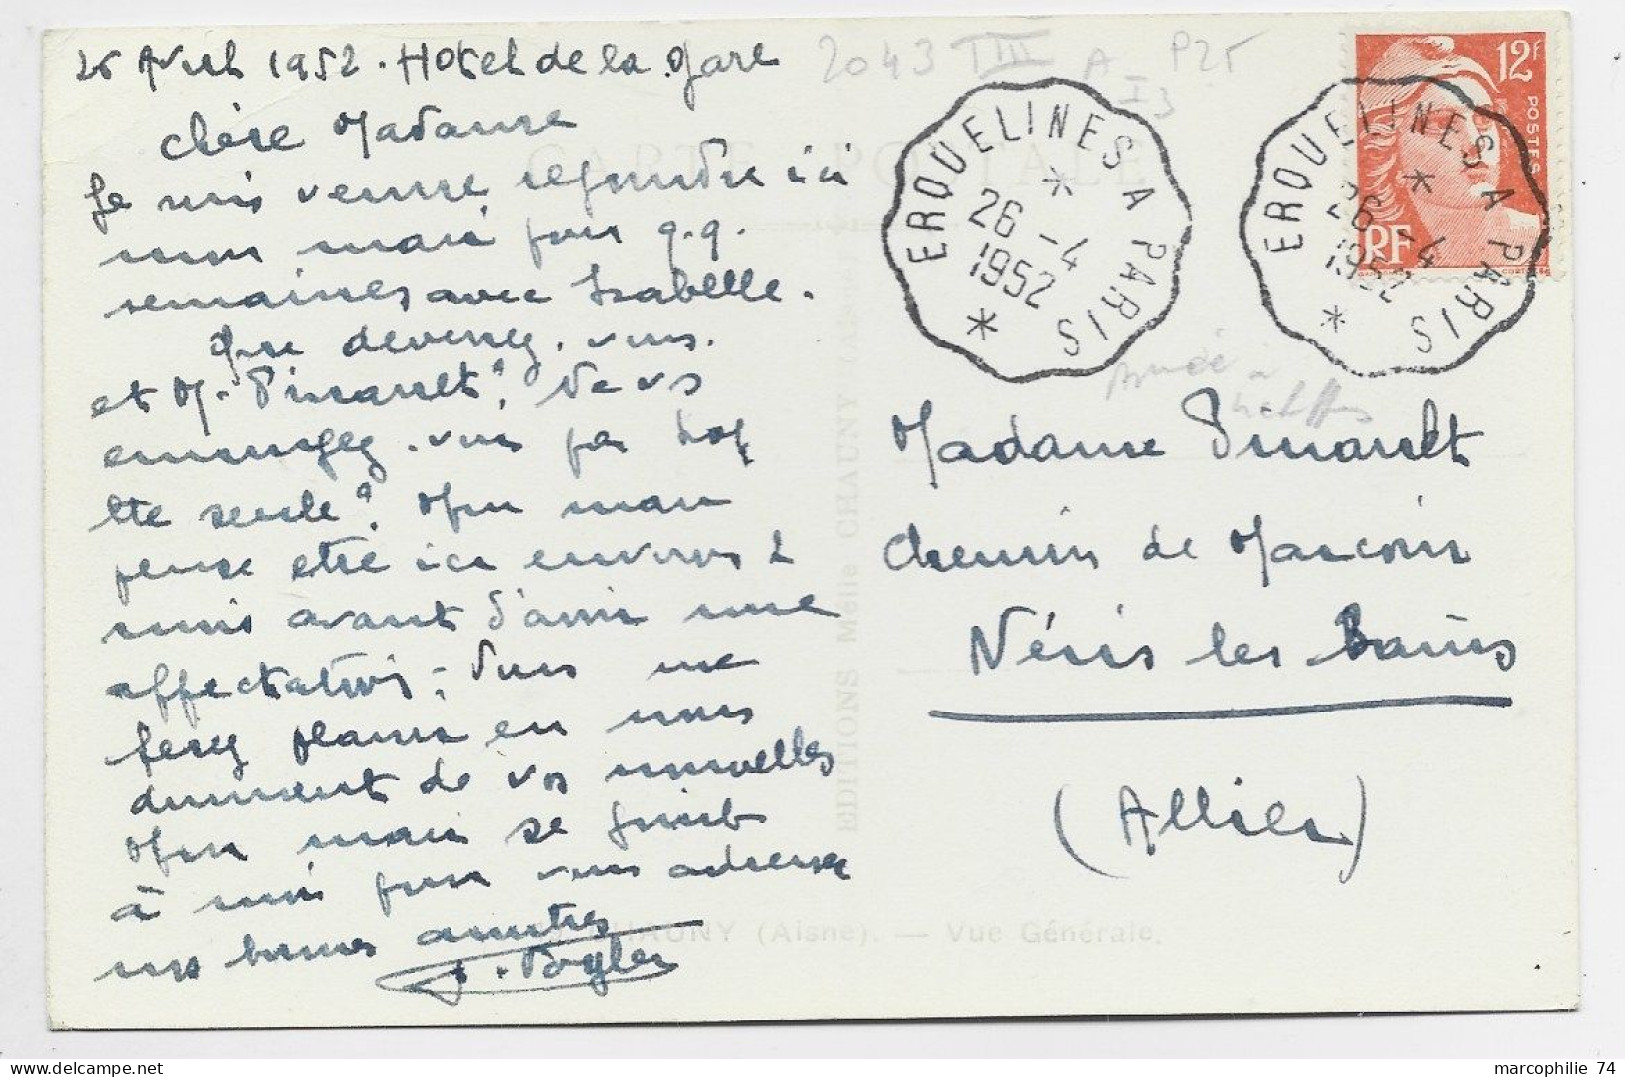 26 Avril 1952. Hotel de la Gare
Chère Madame
Je suis venue rejoindre ici
mon mari pour q.q.
semaines avec Isabelle.
Que devenez. vous.
et M. Pinault? Ne vs
ennuyez. vous pas trop
tte seule? Mon mari
pense etre ici environ 2
mois avant d'avoir une
affectation. Vous me
ferez plaisir en nous
donnant de vos nouvelles
Mon mari se joint
à moi pour vous adresser
nos bonnes amitiés
2043 TIII A P25
I3
CARTE POSTALE
ERQUELINES A PARIS
26 -4
1952
ERQUELINES A PARIS
26 -4
1952
12F
POSTES
RF
EDITIONS Melle CHAUNY
Madame Pinault
Chemin de
Néris les Bains
(Allier)
CHAUNY (Aisne). — Vue Générale.
marcophilie 74